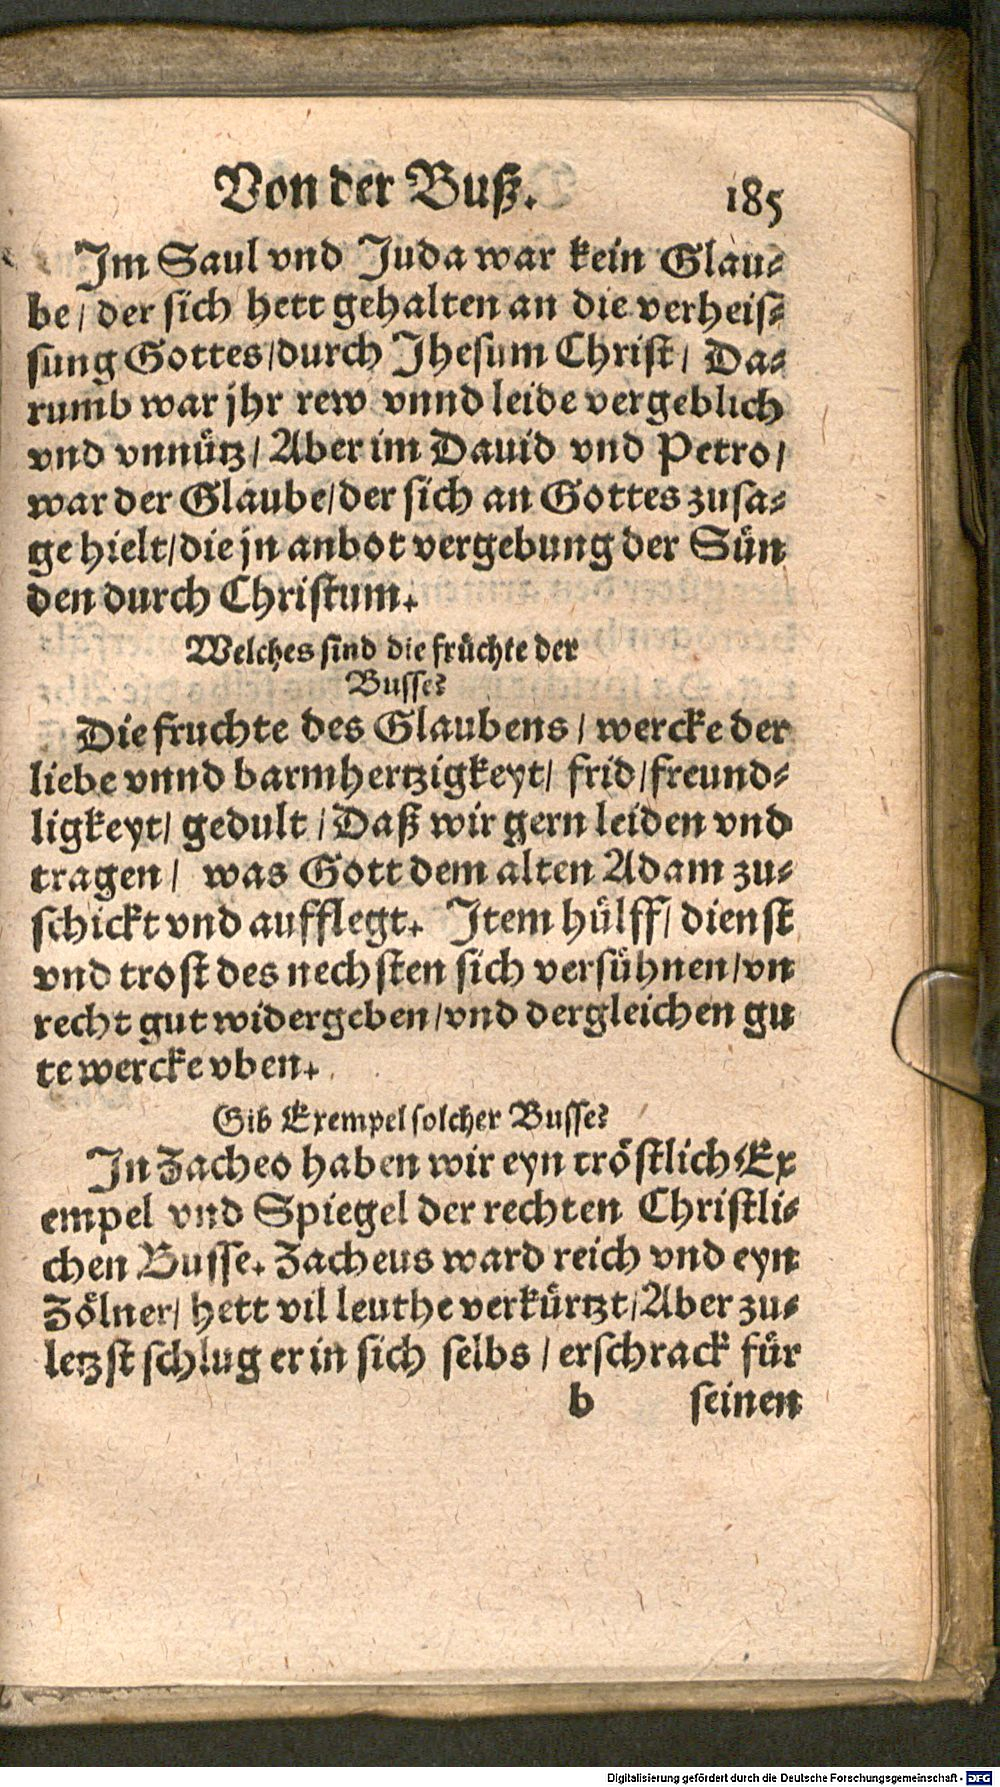 Von der Buß. 185
Im Saul vnd Juda war kein Glau-
be / der sich hett gehalten an die verheis-
sung Gottes / durch Jhesum Christ / Da-
rumb war jhr rew vnnd leide vergeblich
vnd vnnütz / Aber im Dauid vnd Petro /
war der Glaube / der sich an Gottes zusa-
ge hielt / die jn anbot vergebung der Sün
den durch Christum.
Welches sind die früchte der
Busse?
Die fruchte des Glaubens / wercke der
liebe vnnd barmhertzigkeyt / frid / freund-
ligkeyt / gedult / Daß wir gern leiden vnd
tragen / was Gott dem alten Adam zu-
schickt vnd aufflegt. Item hülff / dienst
vnd trost des nechsten sich versühnen / vn
recht gut widergeben / vnd dergleichen gu
te wercke vben.
Gib Exempel solcher Busse?
In Zacheo haben wir eyn tröstlich Ex
empel vnd Spiegel der rechten Christli-
chen Busse. Zacheus ward reich vnd eyn
Zölner / hett vil leuthe verkürtzt / Aber zu-
letzst schlug er in sich selbs / erschrack für
b seinen
Digitalisierung gefördert durch die Deutsche Forschungsgemeinschaft - DFG